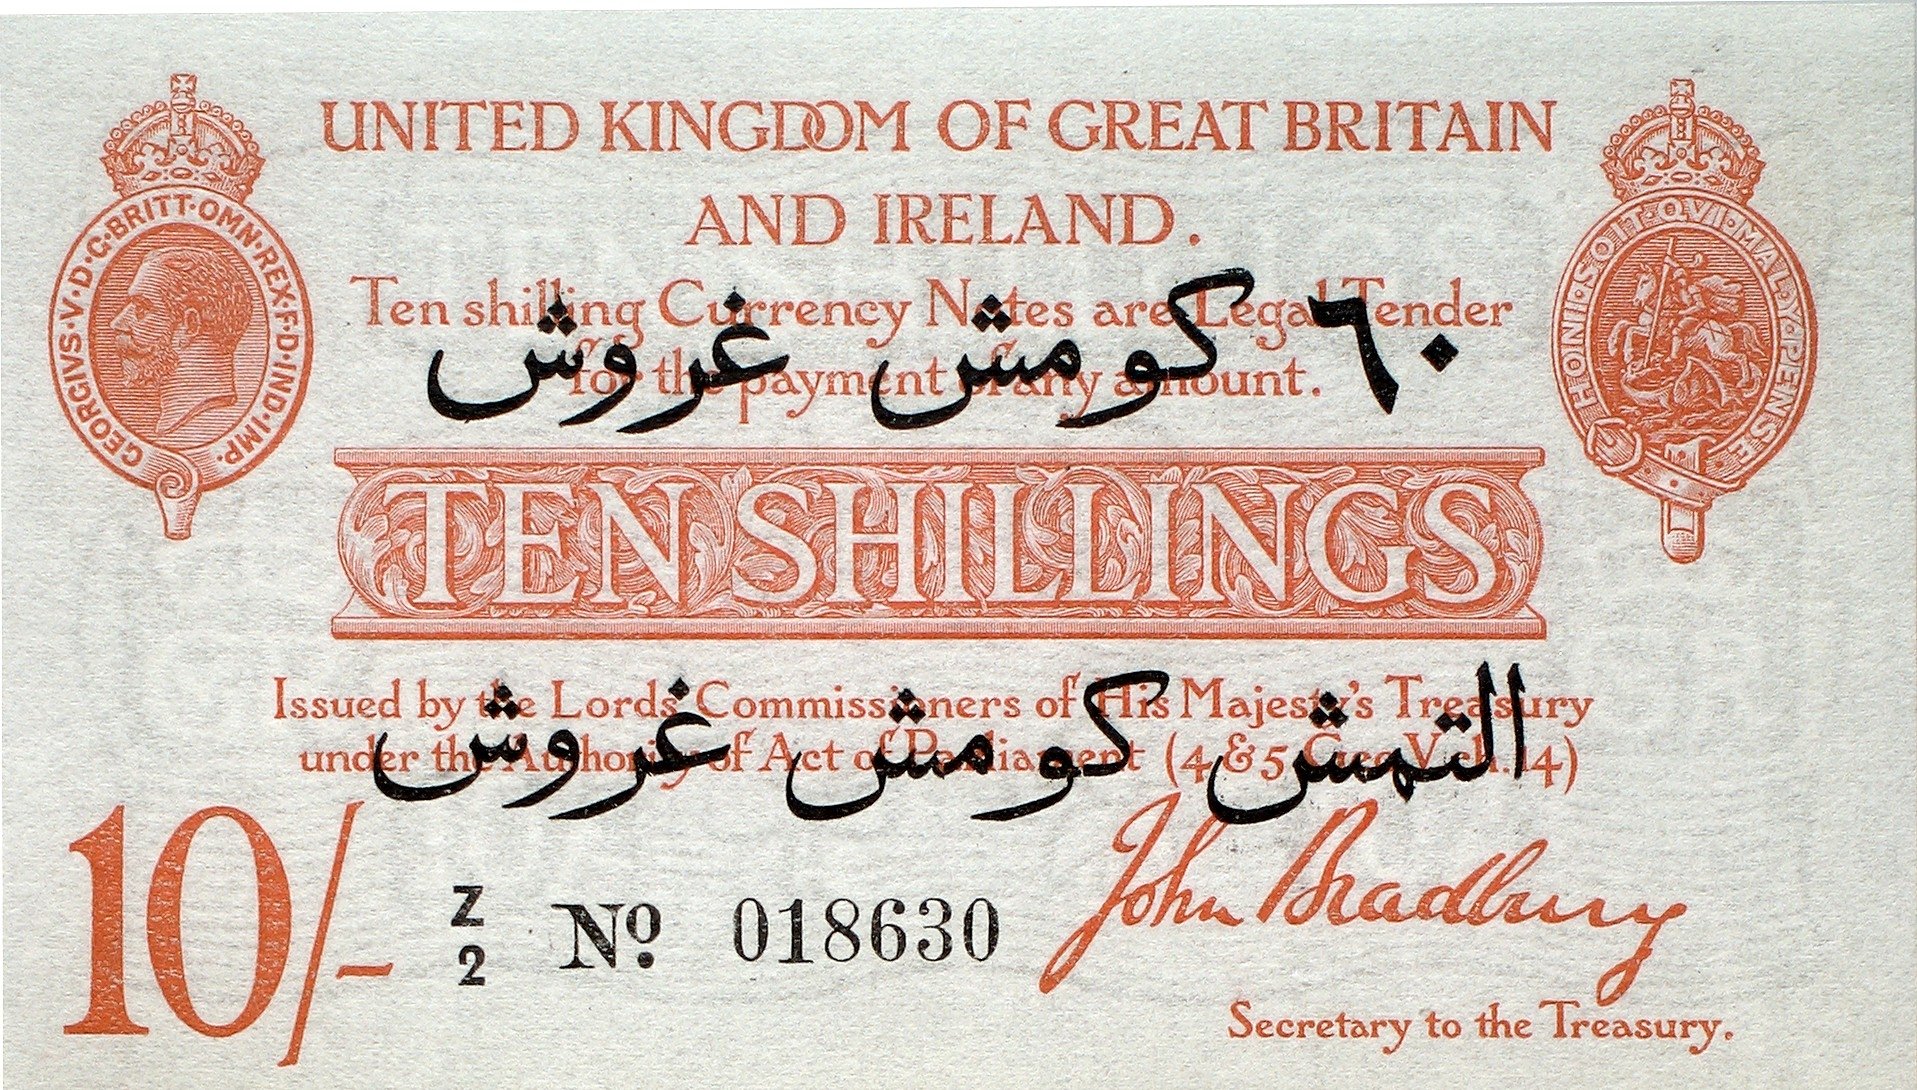 GEORGIVS·V·D·G·BRITT·OMN·REX·F·D·IND·IMP·
HONI·SOIT·QVI·MAL·Y·PENSE
UNITED KINGDOM OF GREAT BRITAIN
AND IRELAND.
Ten shilling Currency Notes are Legal Tender
٦٠ كومش غروش
for the payment of any amount.
TEN SHILLINGS
Issued by the Lords Commissioners of His Majesty's Treasury
التمش كومش غروش
under the Authority of Act of Parliament (4 & 5 Geo. V ch. 14)
10/-
Z
2
No. 018630
John Bradbury
Secretary to the Treasury.